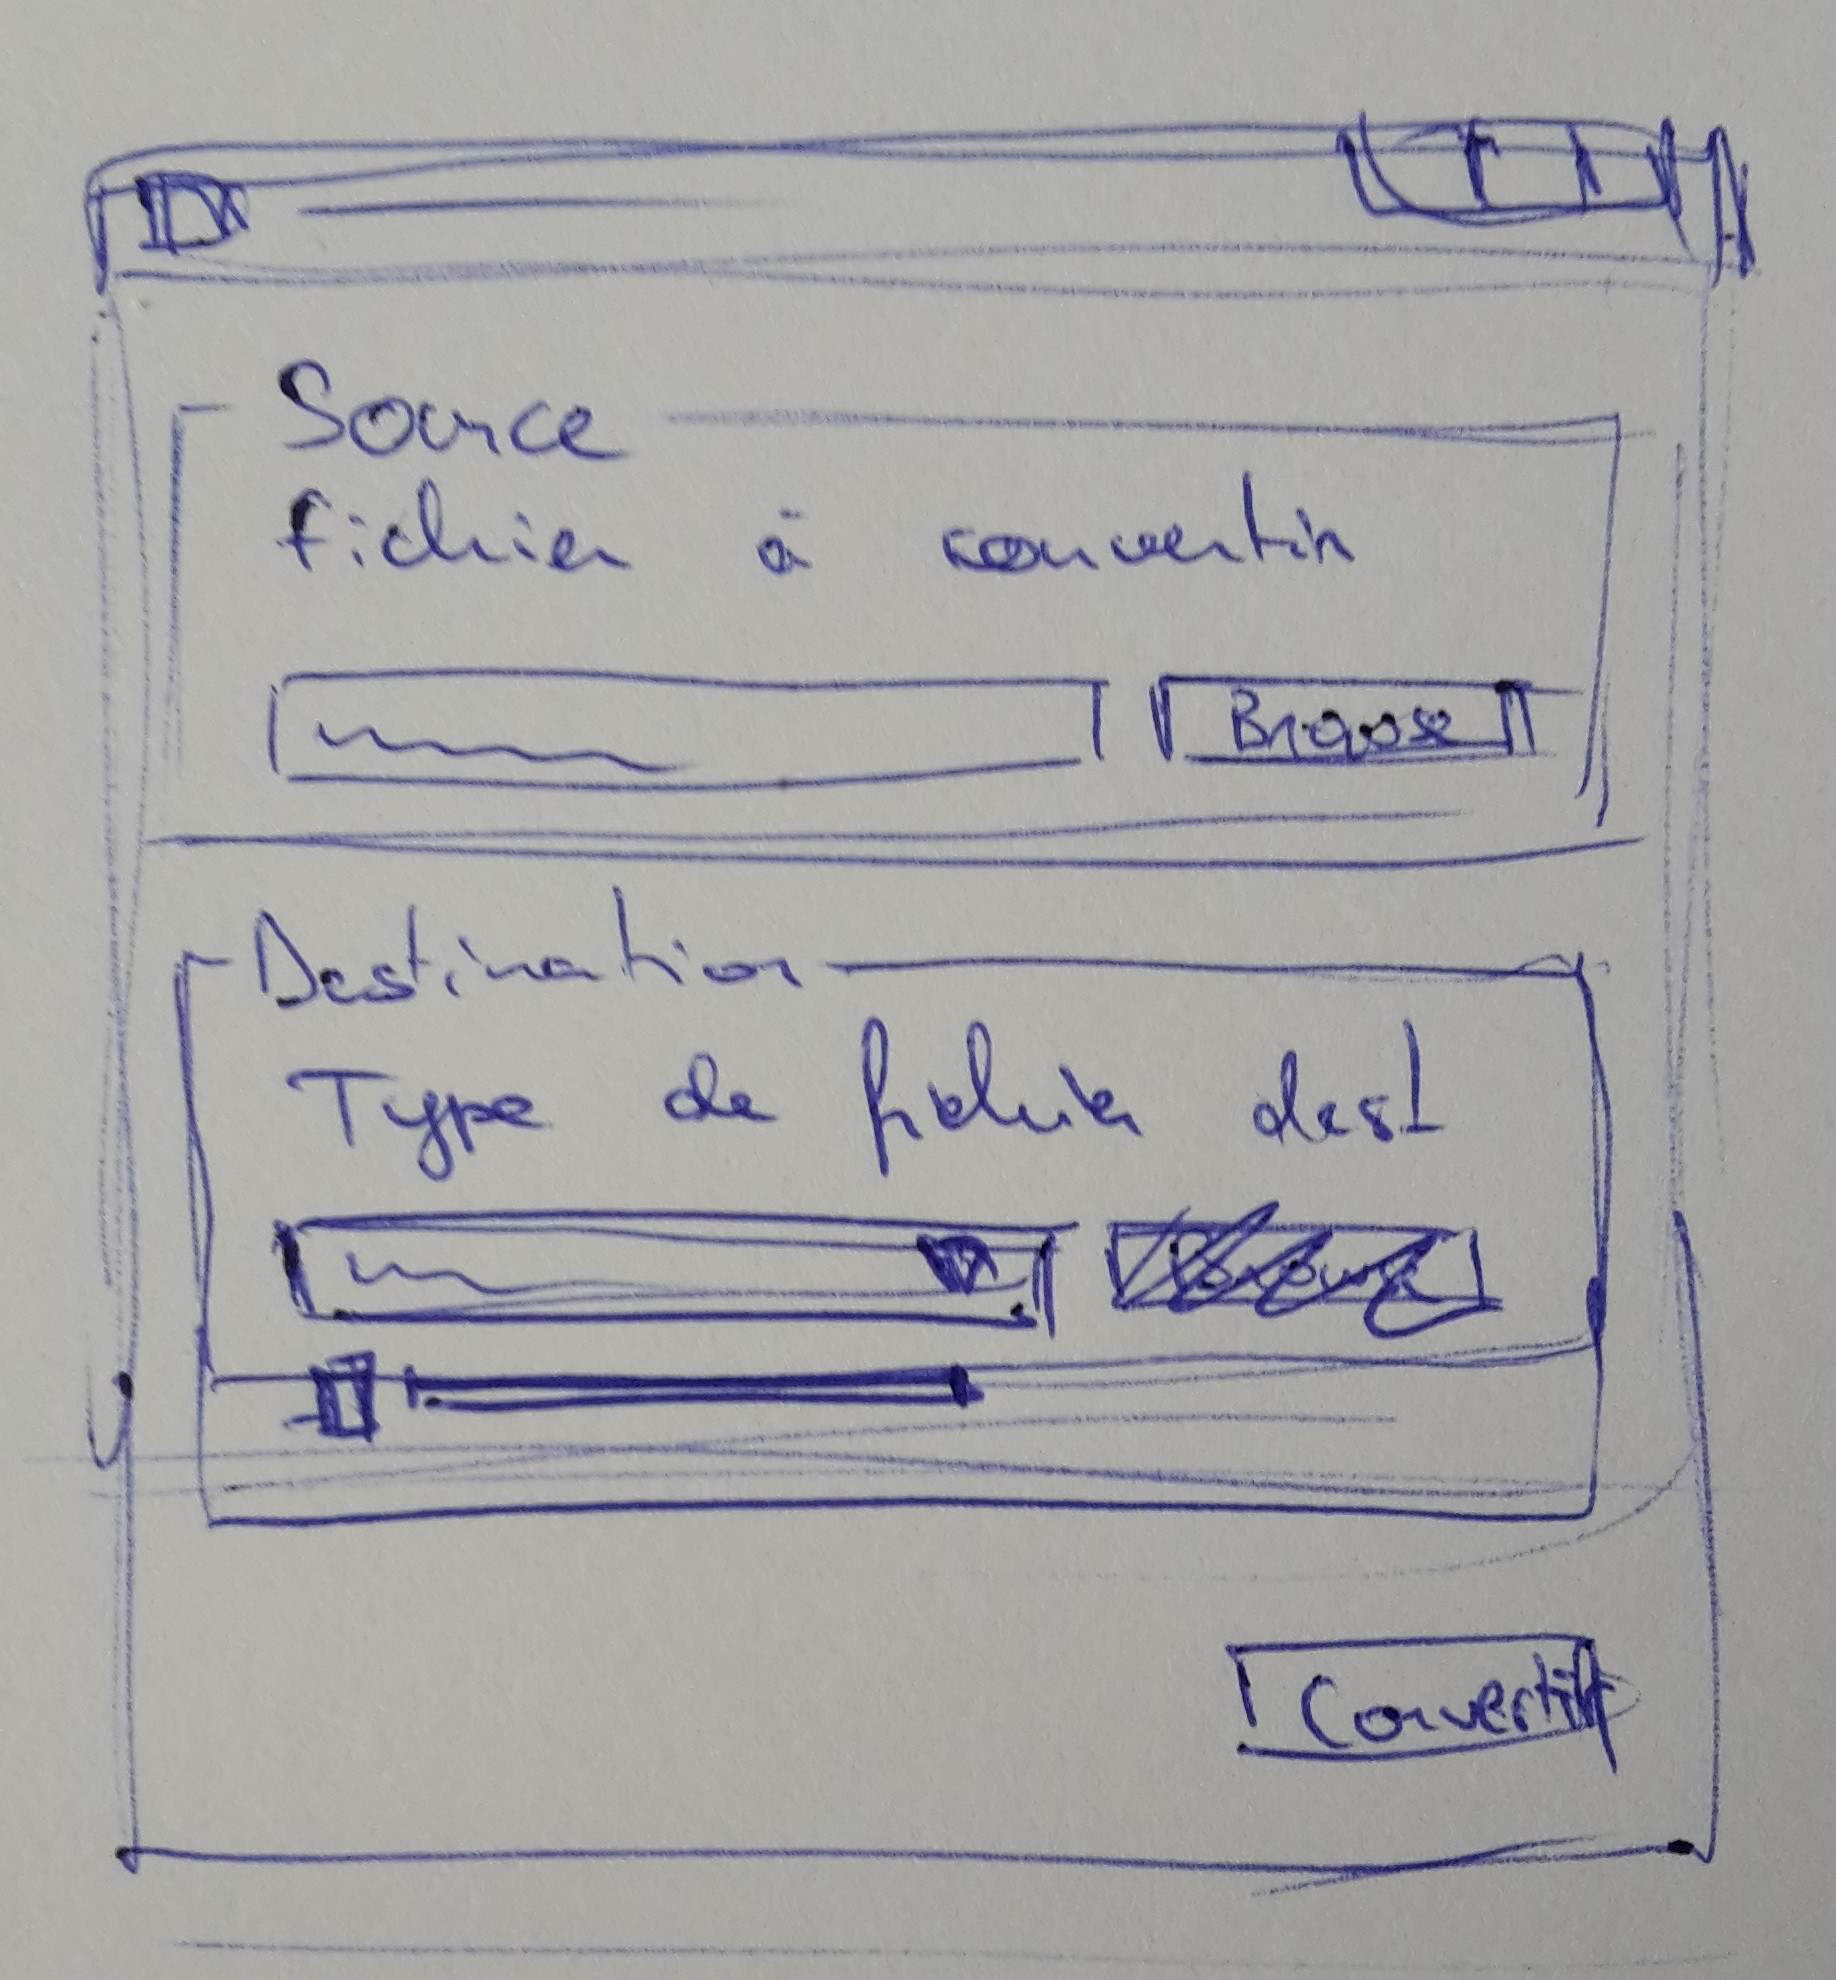 Source
fichier à convertir
Browse
Destination
Type de fichier dest
Convertir